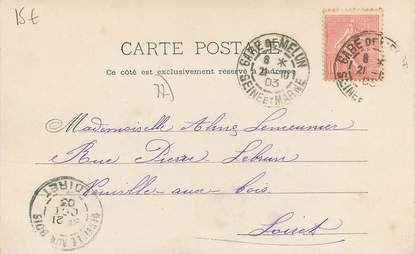 15€
CARTE POSTALE
Ce côté est exclusivement réservé à l'adresse
77
GARE DE MELUN
8 *
21 10
03
SEINE ET MARNE
GARE DE MELUN
8 *
21
03
SEINE ET MARNE
Mademoiselle Aline Lemeunier
Rue Pierre Lebrun
Neuville aux bois
Loiret
NEUVILLE AUX BOIS
21
OCT
03
LOIRET